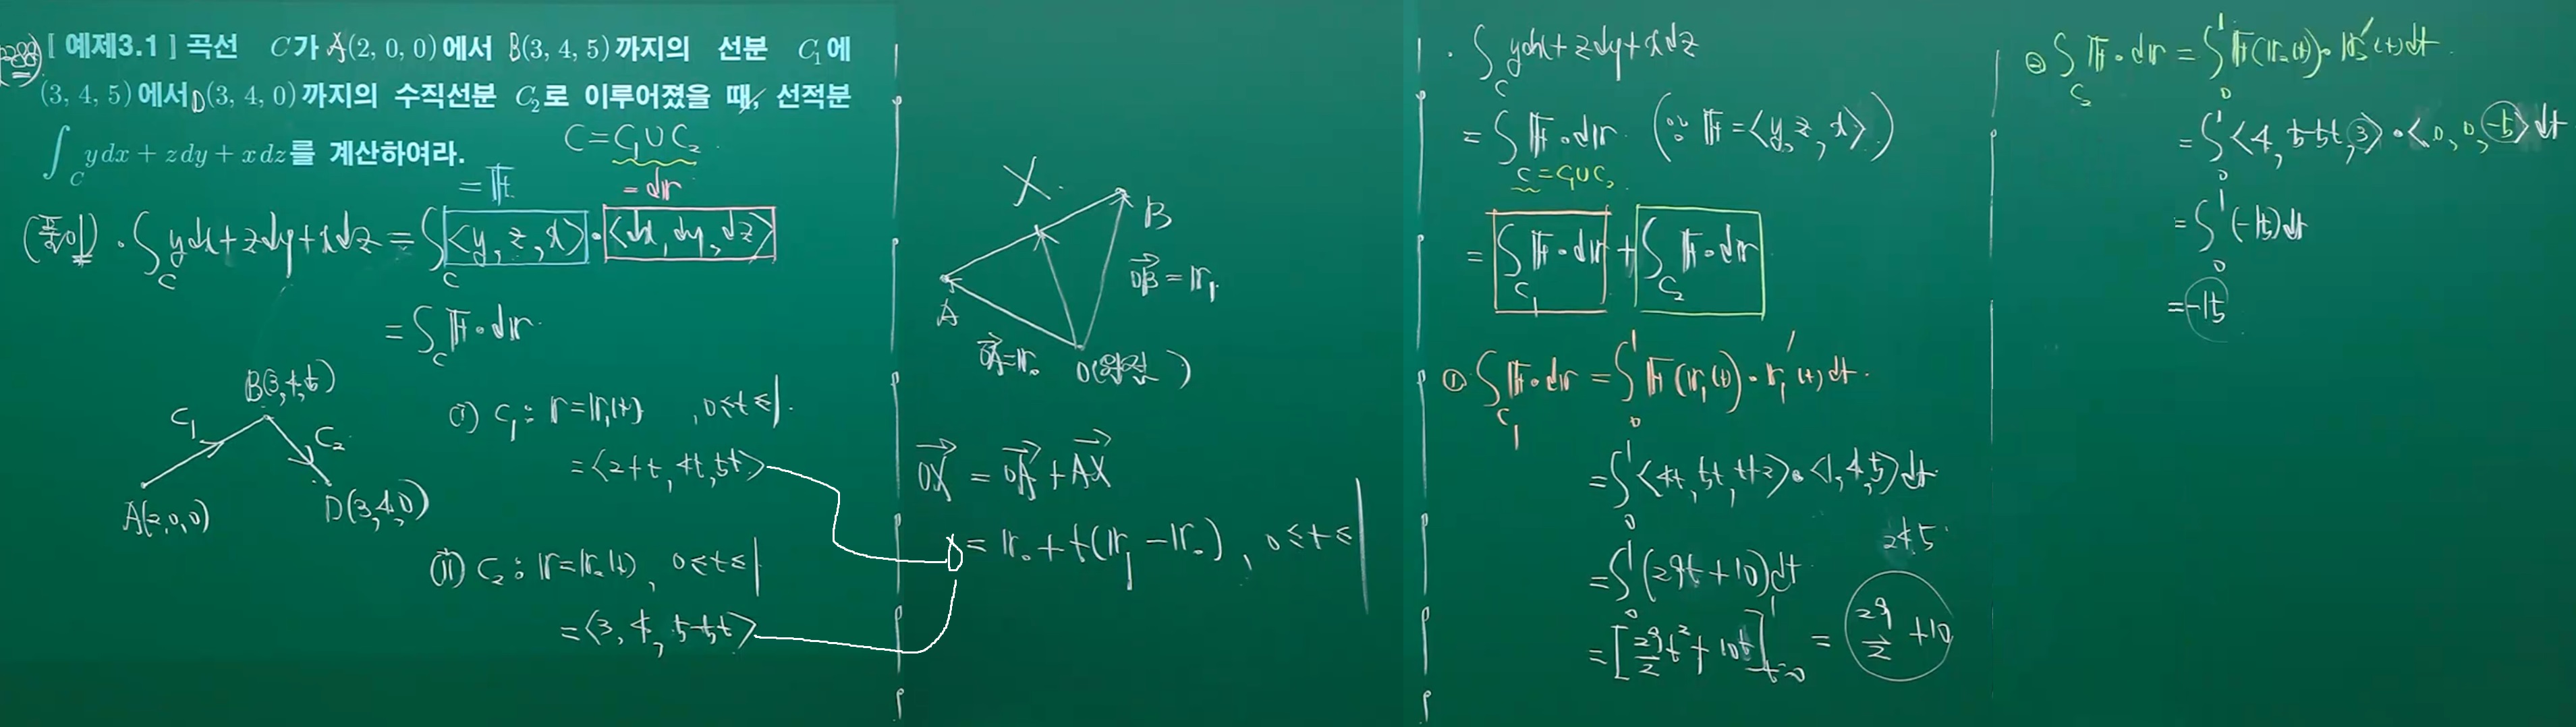 [ 예제3.1 ] 곡선 C가 A(2, 0, 0)에서 B(3, 4, 5)까지의 선분 C₁에
(3, 4, 5)에서 D(3, 4, 0)까지의 수직선분 C₂로 이루어졌을 때, 선적분
∫_C ydx + zdy + xdz를 계산하여라.
C = C₁∪C₂
= 𝔽
= d𝕣
(풀이) · ∫_C ydx + zdy + xdz = ∫_C <y, z, x> · <dx, dy, dz>
= ∫_C 𝔽 · d𝕣
B(3,4,5)
C₁
C₂
A(2,0,0)
D(3,4,0)
(i) C₁ : 𝕣 = 𝕣₁(t) , 0≤t≤1.
= <2+t, 4t, 5t>
(ii) C₂ : 𝕣 = 𝕣₂(t) , 0≤t≤1
= <3, 4, 5-5t>
X
B
OB = 𝕣₁
A
OA = 𝕣₀
O(원점)
OX = OA + AX
= 𝕣₀ + t(𝕣₁ - 𝕣₀) , 0≤t≤1
· ∫_C ydx + zdy + xdz
= ∫_C 𝔽 · d𝕣 (∵ 𝔽 = <y, z, x>)
C = C₁∪C₂
= ∫_C₁ 𝔽 · d𝕣 + ∫_C₂ 𝔽 · d𝕣
① ∫_C₁ 𝔽 · d𝕣 = ∫₀¹ 𝔽(𝕣₁(t)) · 𝕣₁'(t) dt
= ∫₀¹ <4t, 5t, t+2> · <1, 4, 5> dt
24 5
= ∫₀¹ (29t + 10) dt
= [29/2 t² + 10t]¹_t=0 = 29/2 + 10
② ∫_C₂ 𝔽 · d𝕣 = ∫₀¹ 𝔽(𝕣₂(t)) · 𝕣₂'(t) dt
= ∫₀¹ <4, 5-5t, 3> · <0, 0, -5> dt
= ∫₀¹ (-15) dt
= -15